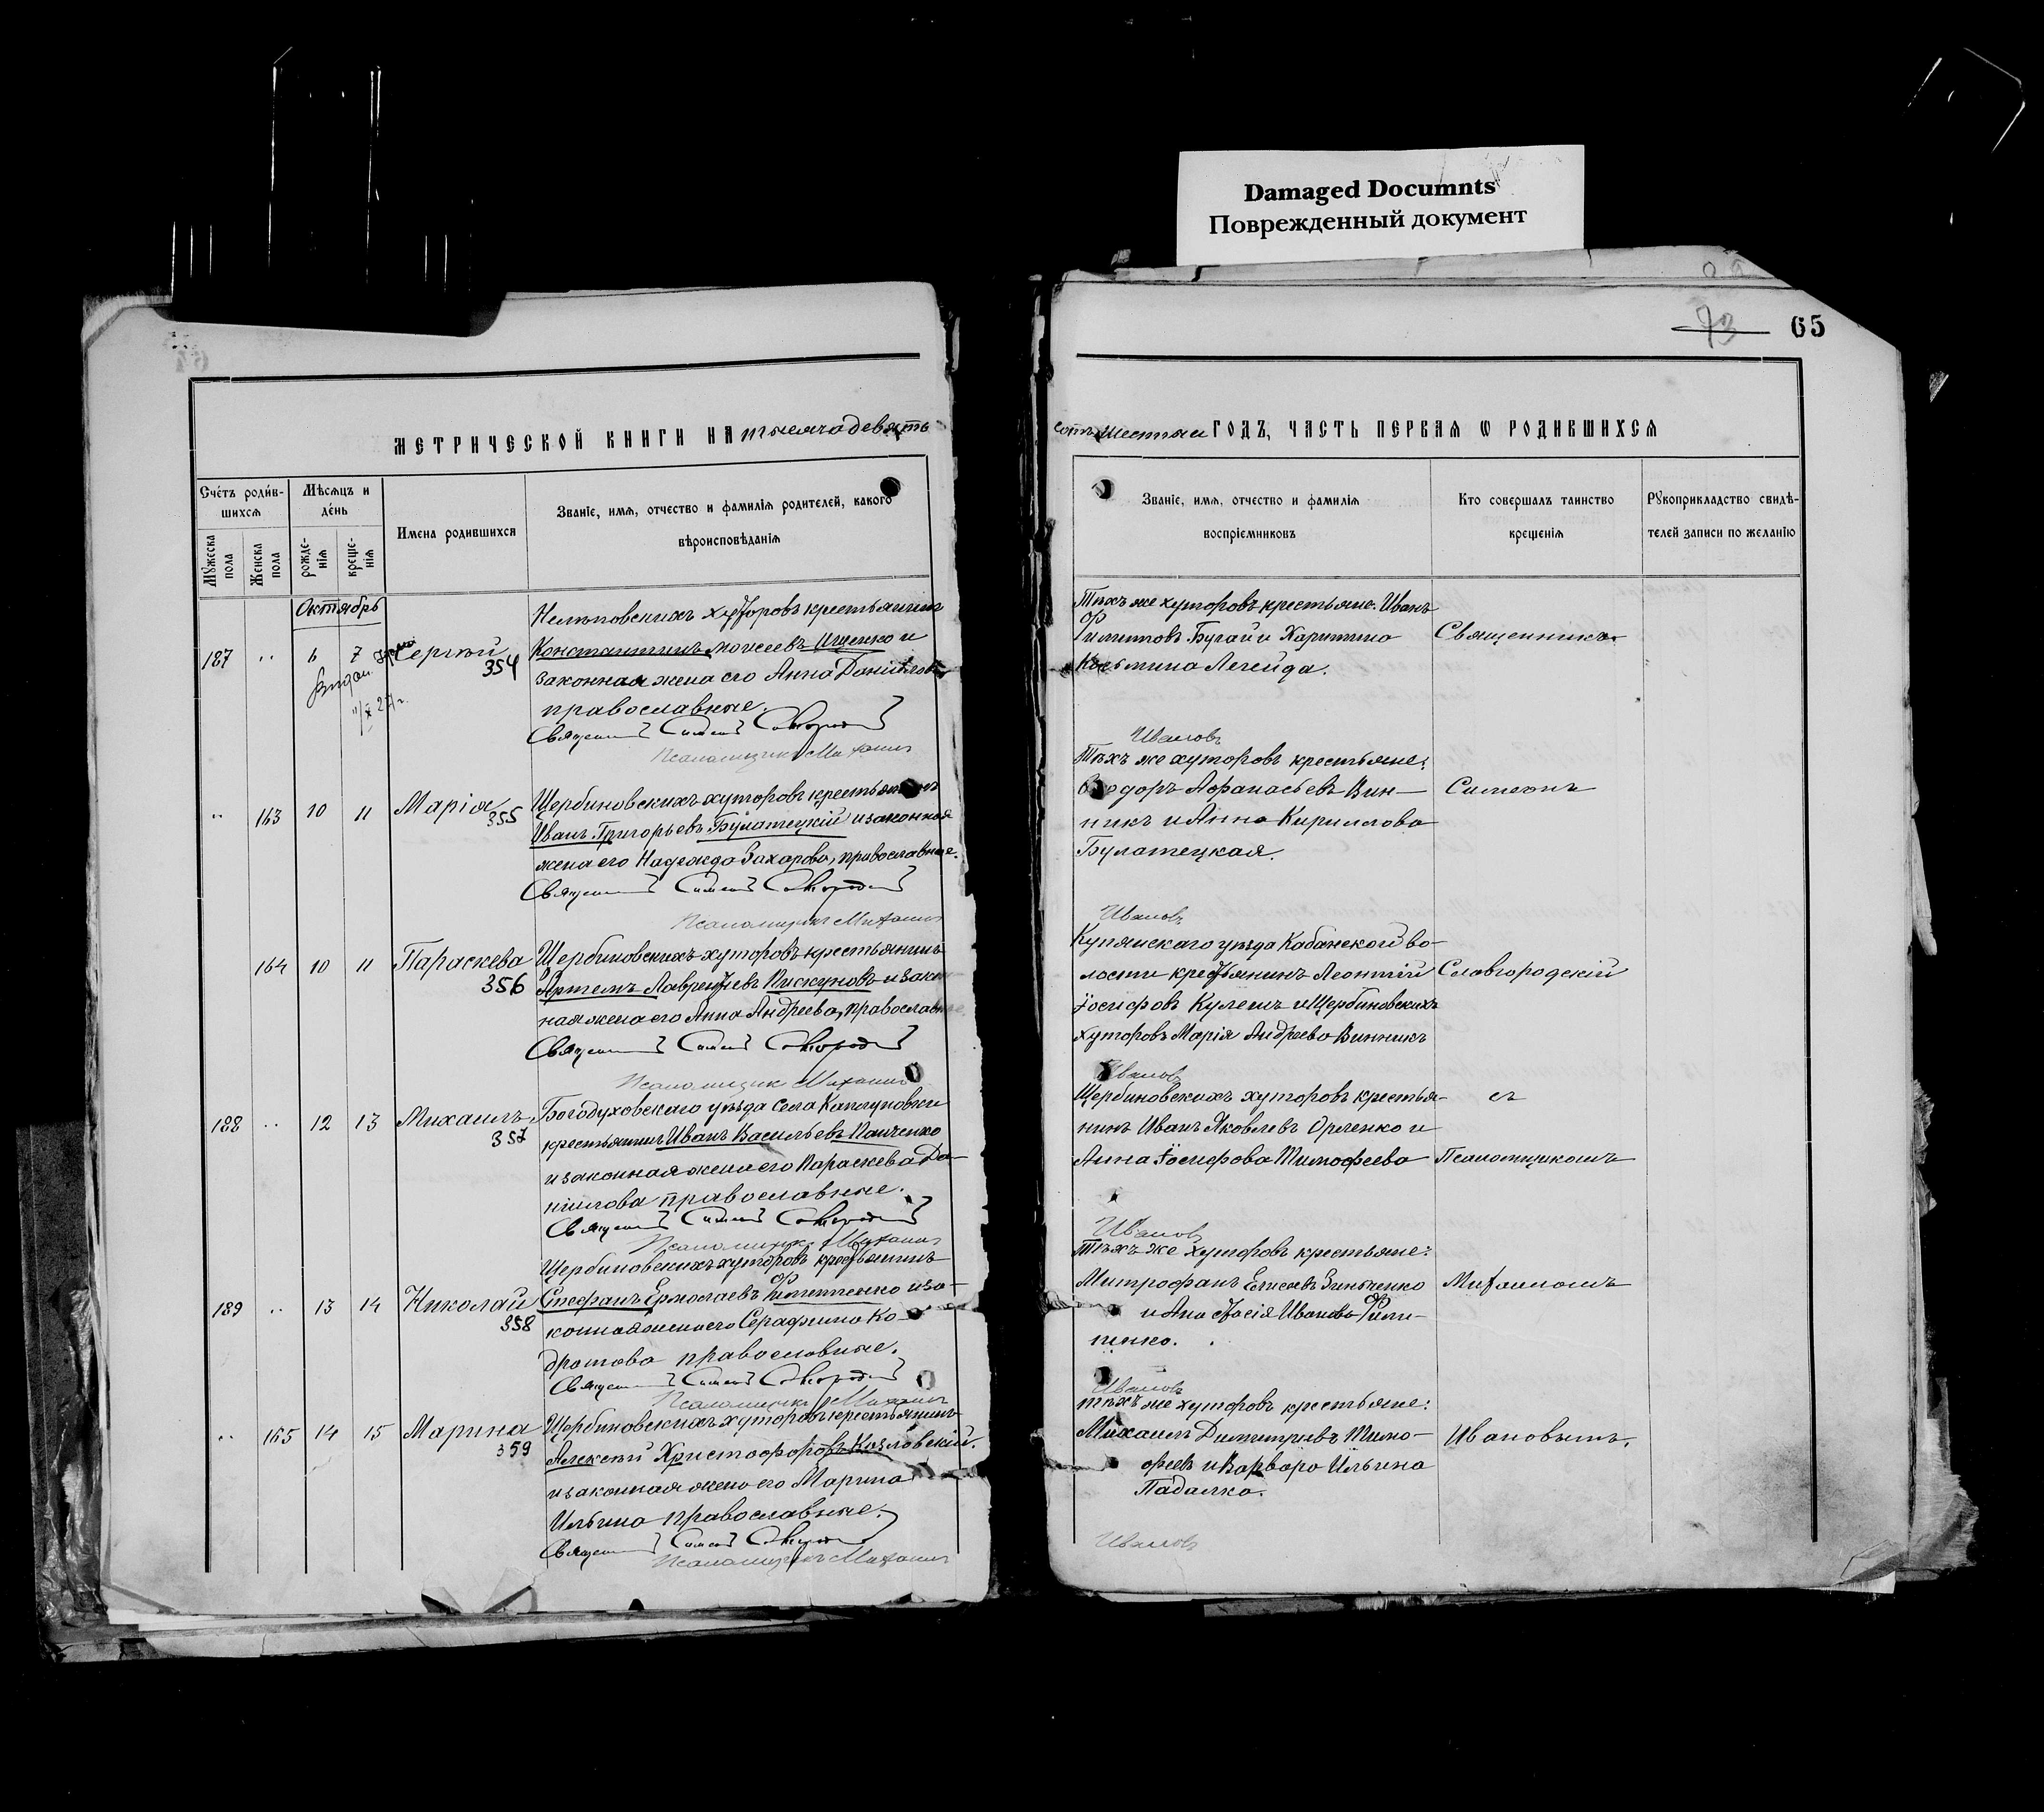 Damaged Documnts
Поврежденный документ
73 65
МЕТРИЧЕСКОЙ КНИГИ НА тысяча девять
Счетъ родив-
шихся
Мѣсяцъ и
день
Имена родившихся
Званіе, имя, отчество и фамилія родителей, какого
вѣроисповѣданія
Мужеска пола
Женска пола
рожде-
нія
креще-
нія
Октябрь
187 " 6 7 Сергѣй 354
Нелѣповскихъ хуторовъ крестьянинъ
Константинъ Моисеевъ Ищенко и
законная жена его Анна Данілова
православные.
Священникъ Симеонъ
Псаломщикъ Михаилъ
" 163 10 11 Марія 355
Щербиновскихъ хуторовъ крестьянинъ
Иванъ Григорьевъ Булатецкій и законная
жена его Надежда Захарова, православные.
Священникъ Симеонъ
Псаломщикъ Михаилъ
164 10 11 Параскева 356
Щербиновскихъ хуторовъ крестьянинъ
Артемъ Лаврентіевъ Пискуновъ и закон
ная жена его Анна Андреева, православные
Священникъ Симеонъ
Псаломщикъ Михаилъ
188 " 12 13 Михаилъ 357
Богодуховскаго уѣзда села Каплуновки
крестьянинъ Иванъ Васильевъ Панченко
и законная жена его Параскева Да-
ніилова православные.
Священникъ Симеонъ
Псаломщикъ Михаилъ
189 " 13 14 Николай 358
Щербиновскихъ хуторовъ крестьянинъ
Стефанъ Ермолаевъ Филипченко и за-
конная жена его Серафима Ко-
дратова православные.
Священникъ Симеонъ
Псаломщикъ Михаилъ
" 165 14 15 Марина 359
Щербиновскихъ хуторовъ крестьянинъ
Алексѣй Христофоровъ Козловскій
и законная жена его Марина
Ильина православные.
Священникъ Симеонъ
Псаломщикъ Михаилъ
сотъ шестый ГОДЪ, ЧАСТЬ ПЕРВАЯ Ѡ РОДИВШИХСЯ
Званіе, имя, отчество и фамилія
воспріемниковъ
Кто совершалъ таинство
крещенія
Рукоприкладство свидѣ-
телей записи по желанію
Тѣхъ же хуторовъ крестьяне: Иванъ
Филиповъ Бугай и Харитина
Козьмина Легейда.
Священникъ
Ивановъ
Тѣхъ же хуторовъ крестьяне:
Ѳеодоръ Афанасьевъ Вин-
никъ и Анна Кириллова
Булатецкая.
Симеонъ
Ивановъ
Купянскаго уѣзда Кабанской во-
лости крестьянинъ Леонтій
Іосифовъ Кулешъ и Щербиновскихъ
хуторовъ Марія Андреева Винникъ
Славгородскій
Ивановъ
Щербиновскихъ хуторовъ крестья-
нинъ Иванъ Яковлевъ Орленко и
Анна Іосифова Тимофеева
съ
Псаломщикомъ
Ивановъ
Тѣхъ же хуторовъ крестьяне:
Митрофанъ Елисеевъ Зинченко
и Анастасія Иванова Фили-
пенко.
Михаиломъ
Ивановъ
тѣхъ же хуторовъ крестьяне:
Михаилъ Димитріевъ Тимо-
феевъ и Варвара Ильина
Падалка.
Ивановымъ.
Ивановъ